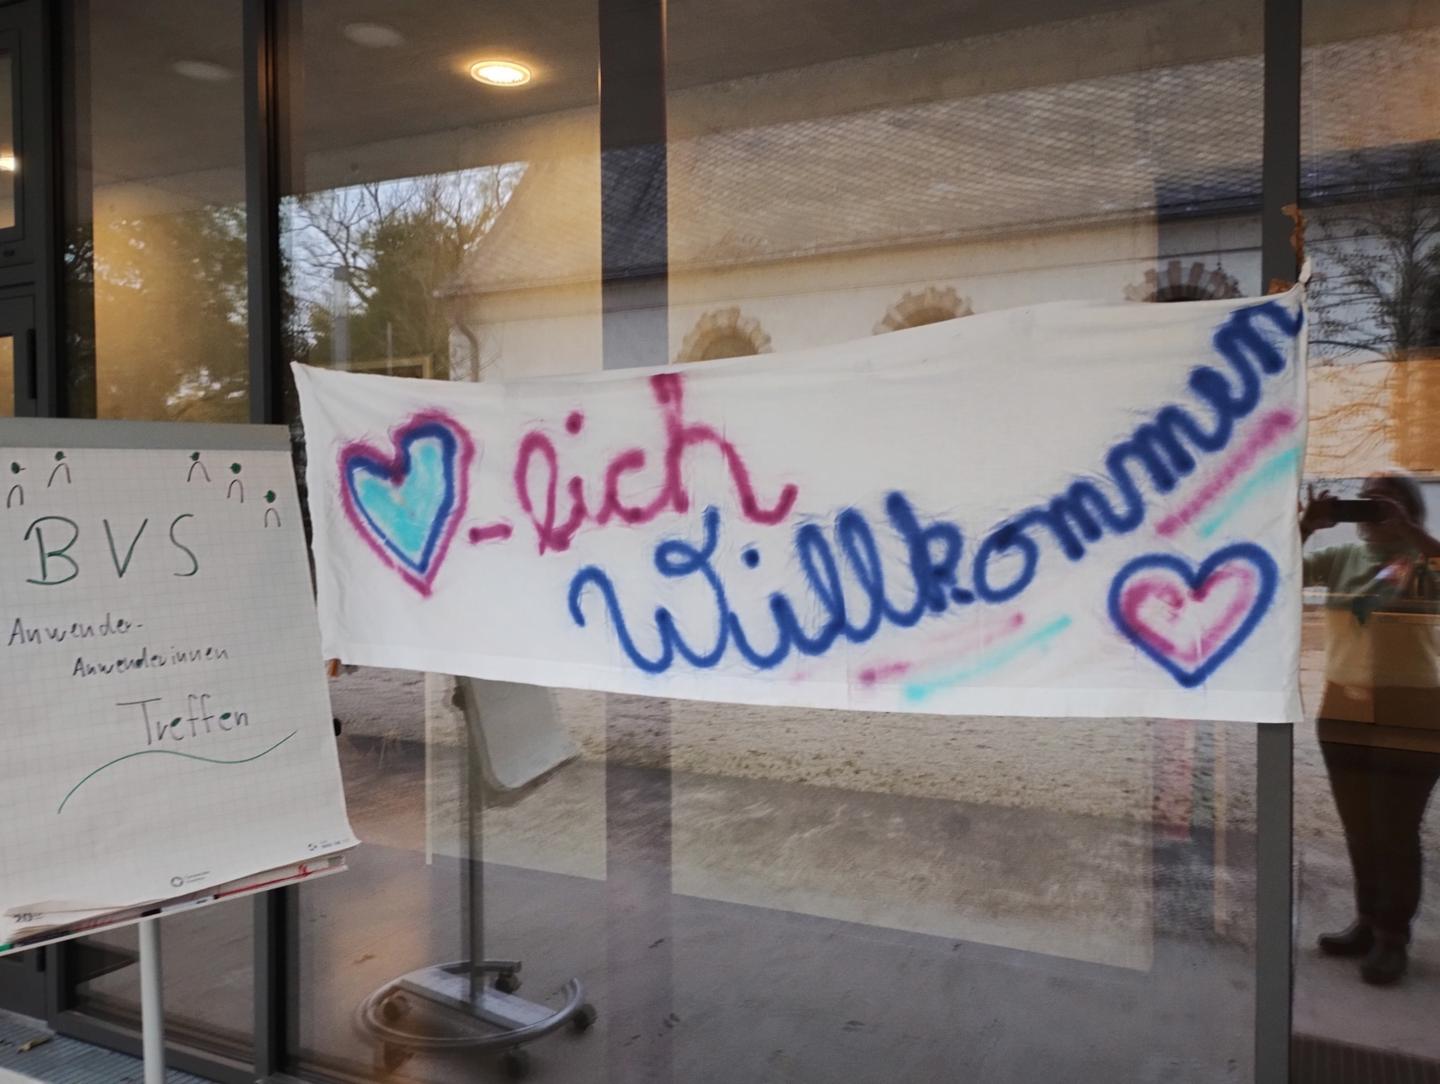 BVS
Anwender-
Anwenderinnen
Treffen
-lich
Willkommen